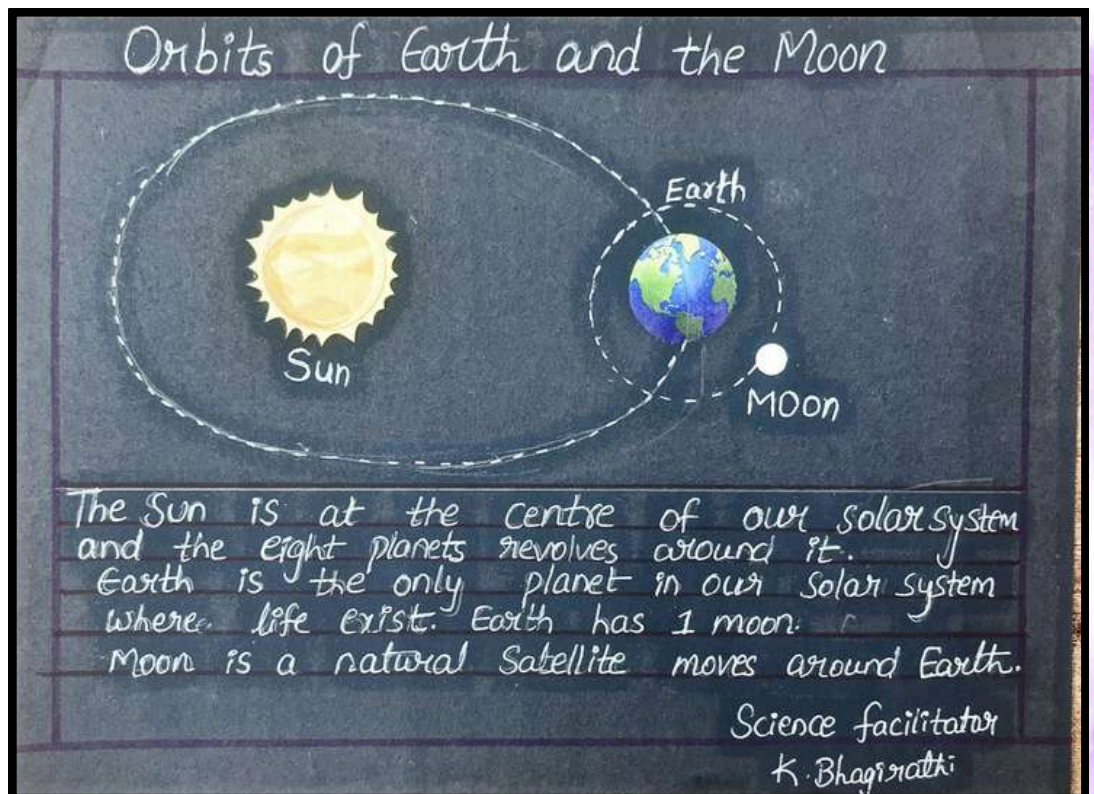 Orbits of Earth and the Moon
Earth
Sun
MOon
The Sun is at the centre of our solar system
and the eight planets revolves around it.
Earth is the only planet in our Solar system
where life exist. Earth has 1 moon.
Moon is a natural Satellite moves around Earth.
Science facilitator
K. Bhagirathi